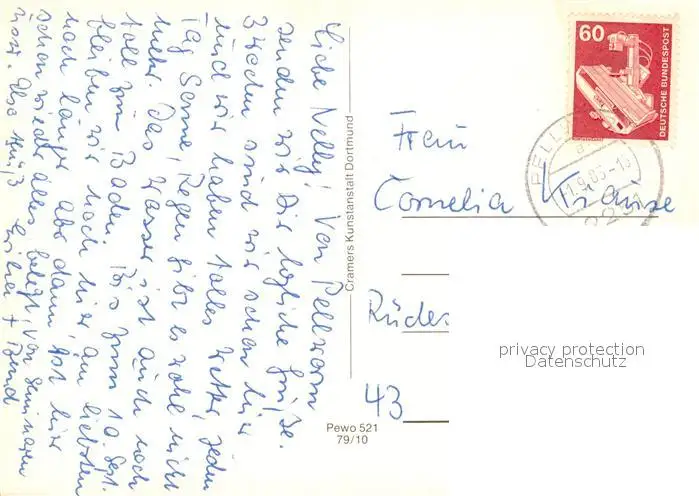 Liebe Nelly! Von Pellworm
senden wir Dir herzliche Grüße.
3 Wochen sind wir schon hier
und wir haben tolles Wetter, jeden
Tag Sonne, Regen gibt es wohl nicht
mehr. Das Wasser ist auch noch
toll zum Baden. Bis zum 10. Sept.
bleiben wir noch hier, am liebsten
noch länger aber dann ist hier
schon wieder alles belegt, von Seminaren
usw. Also Grüß
+ Bernd
Cramers Kunstanstalt Dortmund
Pewo 521
79/10
60
DEUTSCHE BUNDESPOST
PELLW
Frau
Cornelia Krause
Rüdes
43
privacy protection
Datenschutz